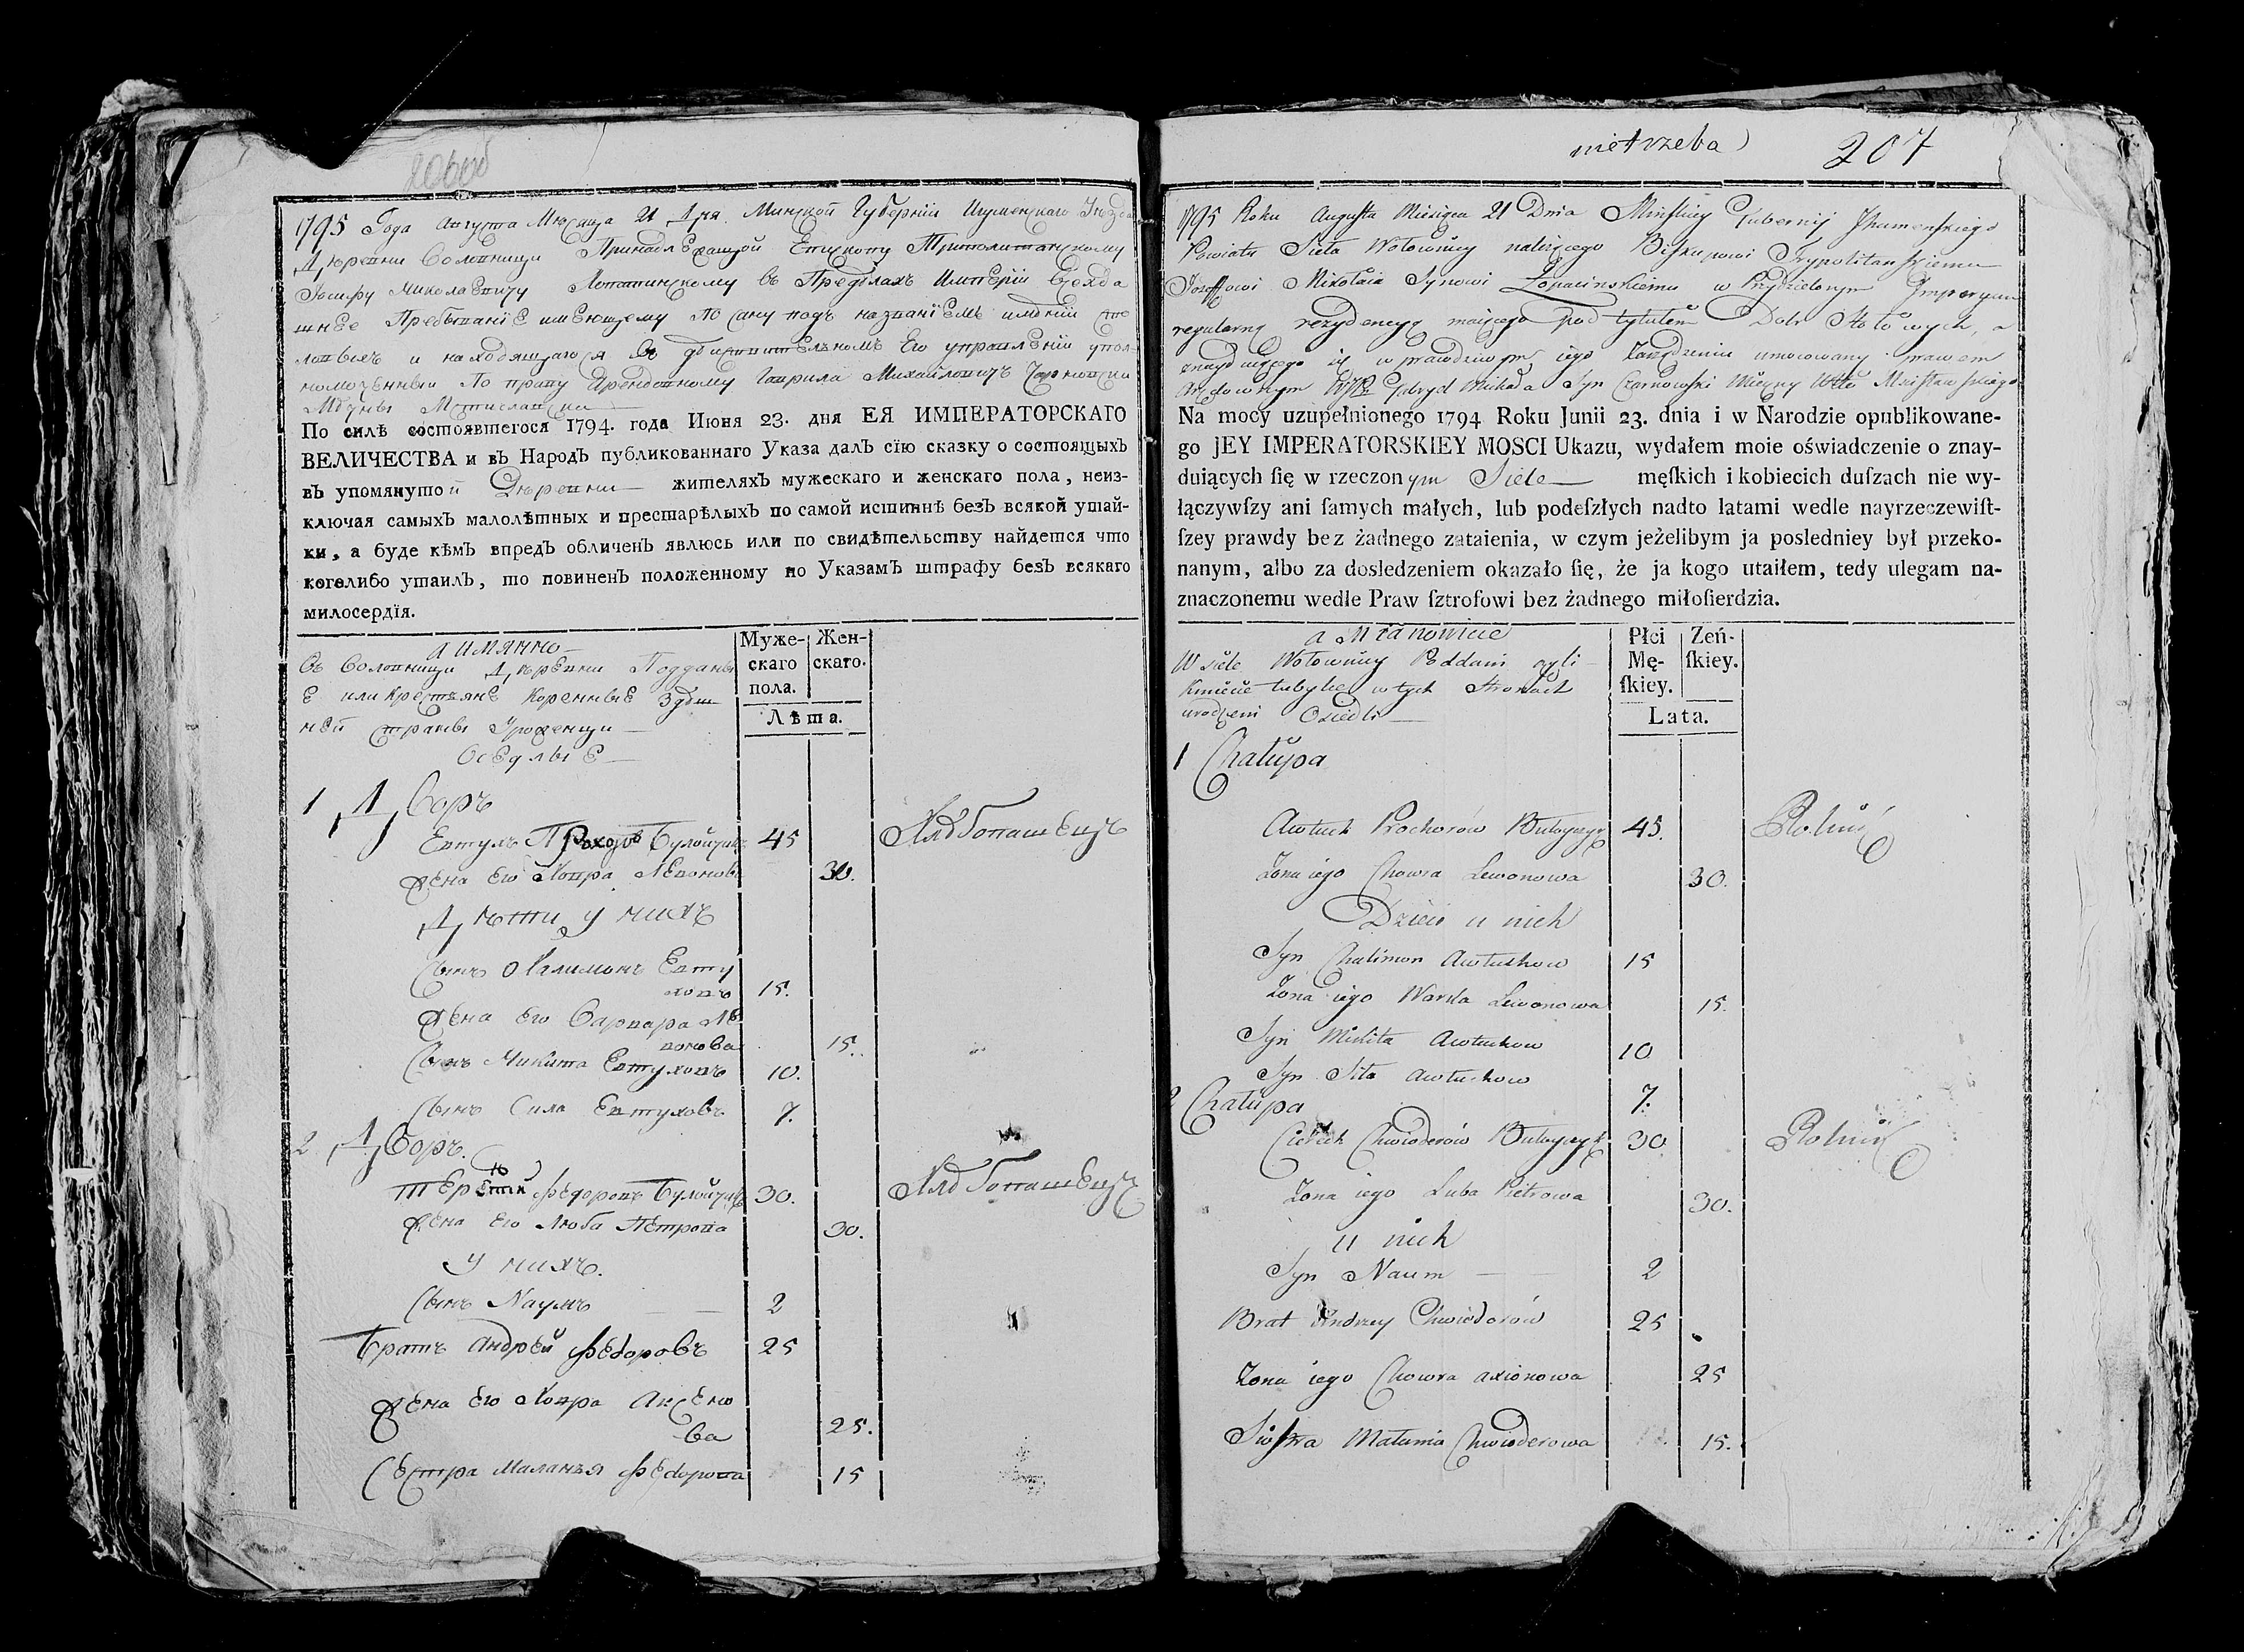 206об
1795 Года Августа Мѣсяца 21 Дня Минской Губерніи Игуменскаго Уѣзда
Дѣревни Воловницы Принадлежащой Епископу Триполитанскому
Іосифу Миколаевичу Лопатинскому въ Предѣлахъ Имперіи
Пребыванїе имеющему По сану подъ названїемъ имѣній сто
ловыхъ и находящагося въ дѣйствительномъ Его управленіи упол-
номоченный По праву Арендовному Гаврила Михайловичъ
По силѣ состоявшегося 1794. года Июня 23. дня ЕЯ ИМПЕРАТОРСКАГО
ВЕЛИЧЕСТВА и въ НародЪ публикованнаго Указа далЪ сїю сказку о состоящыхЪ
въ упомянутой Дѣревни жителяхЪ мужескаго и женскаго пола, неиз-
ключая самыхЪ малолѣтныхъ и престарѣлыхЪ по самой истиннѣ безЪ всякой утай-
ки, а буде кѣмЪ впредЪ обличенЪ явлюсь или по свидѣтельству найдется что
коголибо утаилЪ, то повиненЪ положенному по УказамЪ штрафу безЪ всякаго
милосердїя.
а имянно
Въ Воловницы Дѣревни Подданы
Е или Крестьяне Коренные Здѣш
ней страны Уроженцы
ОсЕдлыЕ
Муже-
скаго
пола.
Жен-
скаго.
Лѣта.
1 Дворъ
Евтухъ Прохоровъ Булойчикъ 45 Хлѣбопашецъ
жена Его Ховра Левонова 30.
Дѣти у нихъ
Сынъ Халимонъ Евту
ховъ 15.
жена Его Варвара Ле
вонова 15.
Сынъ Микита Евтуховъ 10.
Сынъ Сила Евтуховъ 7.
2 Дворъ.
Терешка Федоровъ Булойчикъ 30. Хлѣбопашецъ
жена Его Люба Петрова 30.
У нихъ.
Сынъ Наумъ 2
Братъ Андрей Федоровъ 25
жена Его Ховра Аксено
ва 25.
Сестра Маланья Федорова 15
nietrzeba 207
1795 Roku Augusta Miesiąca 21 Dnia Minskiey Gubernij Jhumenskiego
Powiatu Sieła Wołownicy należącego Biskupowi Trypolitanskiemu
Jozeffowi Mikołaia Synowi Łopacinskiemu w Przydzielonym Imperyum
regularną rezydencyą maiącego pod tytułem Dobr Stołowych, a
znayduiącego się w prawdziwym iego Zarządzeniu umocowany prawem
Arędownym Gabryel Michała Syn Czarnowski
Na mocy uzupełnionego 1794 Roku Junii 23. dnia i w Narodzie opublikowane-
go JEY IMPERATORSKIEY MOSCI Ukazu, wydałem moie oświadczenie o znay-
duiących ſię w rzeczonym Siele męſkich i kobiecich duſzach nie wy-
łączywſzy ani ſamych małych, lub podeſzłych nadto latami wedle nayrzeczewiſt-
ſzey prawdy bez żadnego zataienia, w czym jeżelibym ja posledniey był przeko-
nanym, albo za dosledzeniem okazało ſię, że ja kogo utaiłem, tedy ulegam na-
znaczonemu wedle Praw ſztrofowi bez żadnego miłoſierdzia.
a Mianowicie
W siele Wołownicy Poddani czyli
Kmiecie tubylce w tych Stronach
urodzeni Osiedli
Płci
Mę-
ſkiey.
Zeń-
ſkiey.
Lata.
1 Chałupa
Awtuch Prochorow Bułoyczyk 45. Rolnik
Zona iego Chowra Lewonowa 30.
Dzieci u nich
Syn Chalimon Awtuchow 15
Zona iego Warka Lewonowa 15.
Syn Mikita Awtuchow 10
Syn Siła Awtuchow 7.
2 Chałupa
Cierech Chwiodorow Bułoyczyk 30. Rolnik
Zona iego Luba Pietrowa 30.
u nich
Syn Naum 2
Brat Andrzey Chwiedorow 25
Zona iego Chowra axionowa 25
Siostra Małania Chwiedorowa 15.